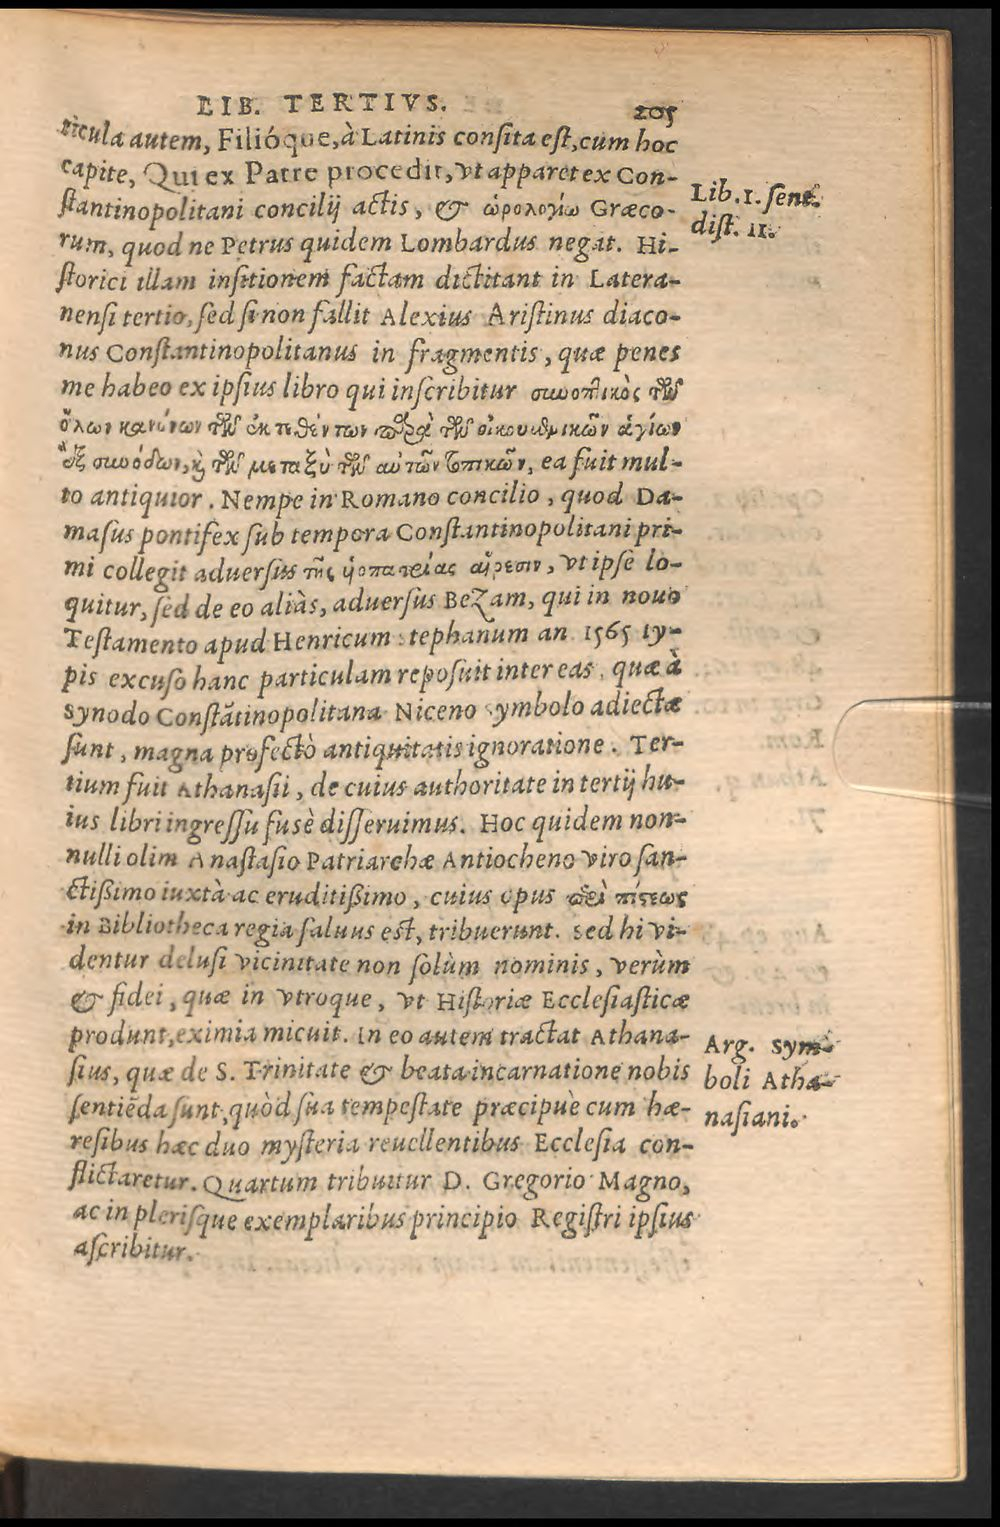 LIB. TERTIVS. 205
ticula autem, Filióque, à Latinis consita est, cum hoc
capite, Qui ex Patre procedit, vt apparet ex Con-
stantinopolitani concilij actis, & ὡρολογίῳ Græco-
rum, quod ne Petrus quidem Lombardus negat. Hi-
storici illam insitionem factam dictitant in Latera-
nensi tertio, sed si non fallit Alexius Aristinus diaco-
nus Constantinopolitanus in fragmentis, quæ penes
me habeo ex ipsius libro qui inscribitur συνοπτικὸς τῶν
ὅλων κανόνων τῶν ἐκτεθέντων παρὰ τῶν οἰκουμενικῶν ἁγίων
ἓξ συνόδων, καὶ τῶν μεταξὺ τῶν αὐτῶν τοπικῶν, ea fuit mul-
to antiquior. Nempe in Romano concilio, quod Da-
masus pontifex sub tempora Constantinopolitani pri-
mi collegit aduersus τῆς ἱοπατείας αἵρεσιν, vt ipse lo-
quitur, sed de eo aliàs, aduersus Bezam, qui in nouo
Testamento apud Henricum Stephanum an 1565 ty-
pis excuso hanc particulam reposuit inter eas, quæ à
Synodo Constãtinopolitana Niceno symbolo adiectæ
sunt, magna profectò antiquitatis ignoratione. Ter-
tium fuit Athanasii, de cuius authoritate in tertij hu-
ius libri ingressu fusè disseruimus. Hoc quidem non-
nulli olim Anastasio Patriarchæ Antiocheno viro san-
ctißimo iuxtà ac eruditißimo, cuius opus περὶ πίστεως
in Bibliotheca regia saluus est, tribuerunt. Sed hi vi-
dentur delusi vicinitate non solùm nominis, verùm
& fidei, quæ in vtroque, vt Historiæ Ecclesiasticæ
produnt, eximia micuit. In eo autem tractat Athana-
sius, quæ de S. Trinitate & beata incarnatione nobis
sentiẽda sunt, quòd sua tempestate præcipuè cum hæ-
resibus hæc duo mysteria reuellentibus Ecclesia con-
flictaretur. Quartum tribuitur D. Gregorio Magno,
ac in plerisque exemplaribus principio Registri ipsius
ascribitur.
Lib. 1. sent.
dist. 11.
Arg. Sym-
boli Atha-
nasiani.